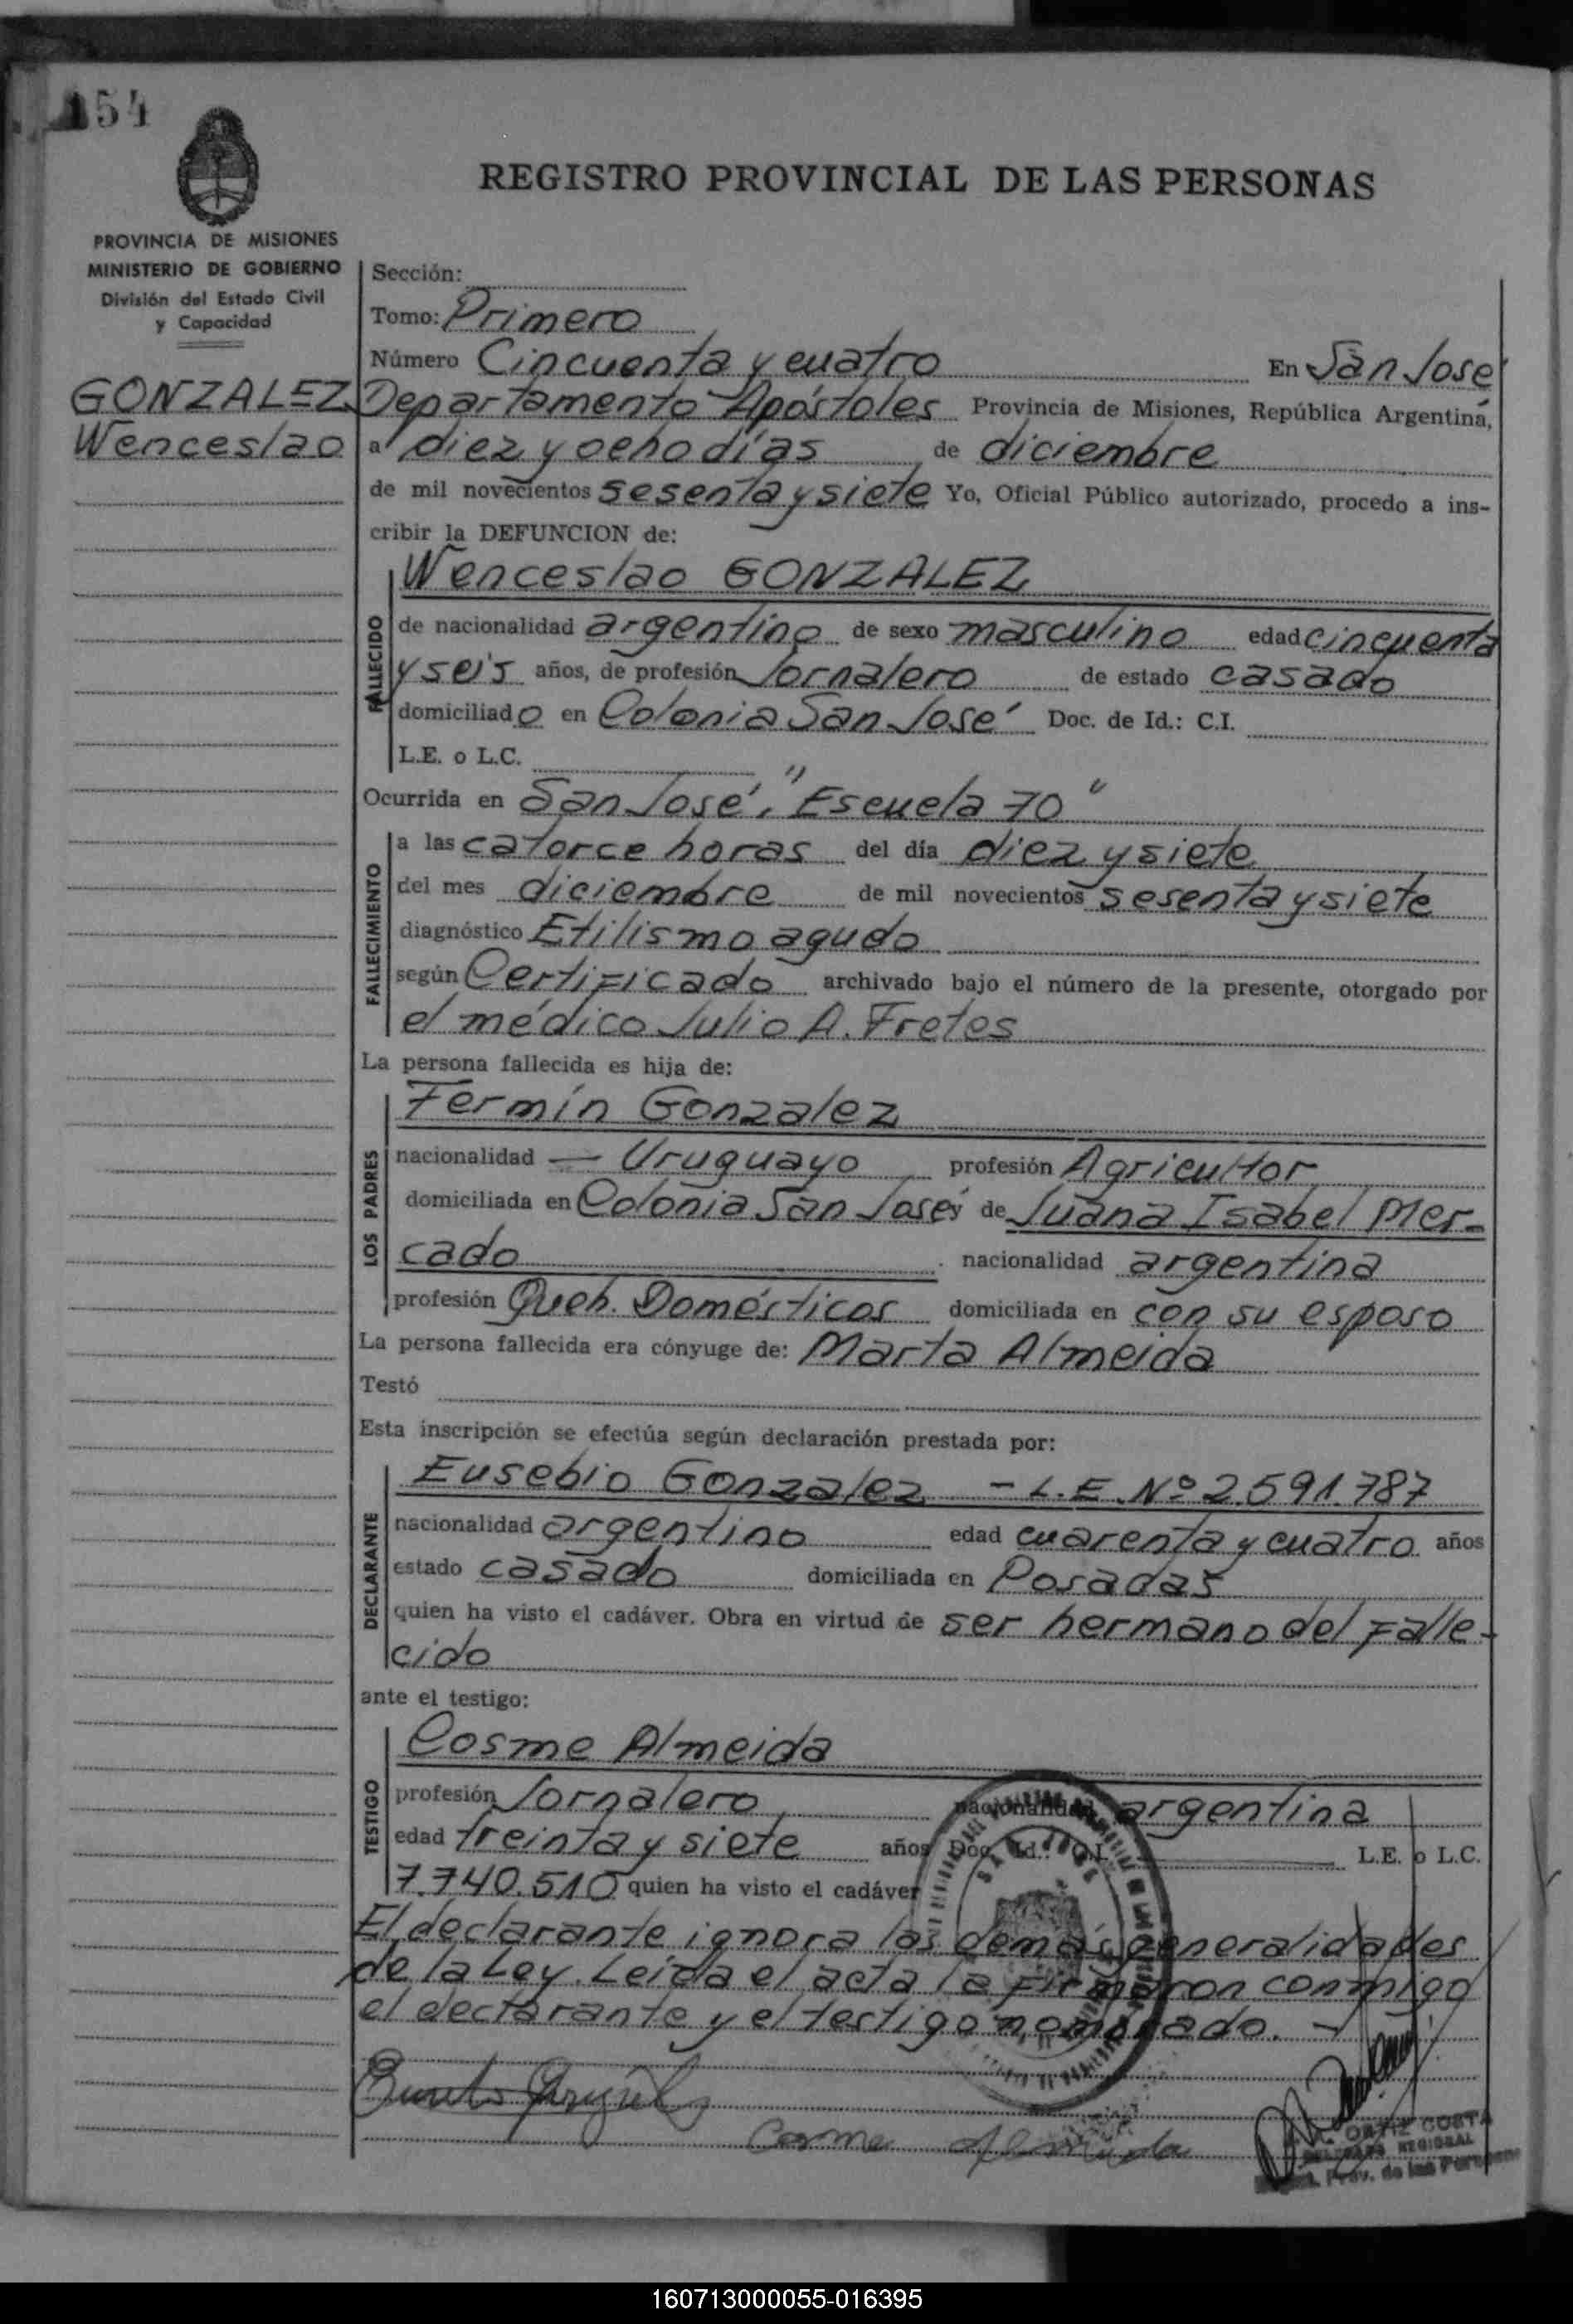 154
REGISTRO PROVINCIAL DE LAS PERSONAS
PROVINCIA DE MISIONES
MINISTERIO DE GOBIERNO
División del Estado Civil
y Capacidad
GONZALEZ
Wenceslao
Sección:
Tomo: Primero
Número Cincuenta y cuatro En San José
Departamento Apóstoles Provincia de Misiones, República Argentina,
a diez y ocho días de diciembre
de mil novecientos sesenta y siete Yo, Oficial Público autorizado, procedo a ins-
cribir la DEFUNCION de:
FALLECIDO
Wenceslao GONZALEZ
de nacionalidad argentino de sexo masculino edad cincuenta
y seis años, de profesión Jornalero de estado casado
domiciliado en Colonia San José Doc. de Id.: C.I.
L.E. o L.C.
Ocurrida en San José, "Escuela 70"
FALLECIMIENTO
a las catorce horas del día diez y siete
del mes diciembre de mil novecientos sesenta y siete
diagnóstico Etilismo agudo
según Certificado archivado bajo el número de la presente, otorgado por
el médico Julio A. Fretes
La persona fallecida es hija de:
LOS PADRES
Fermín Gonzalez
nacionalidad — Uruguayo profesión Agricultor
domiciliada en Colonia San José y de Juana Isabel Mer-
cado nacionalidad argentina
profesión Queh. Domésticos domiciliada en con su esposo
La persona fallecida era cónyuge de: Marta Almeida
Testó
Esta inscripción se efectúa según declaración prestada por:
DECLARANTE
Eusebio Gonzalez - L.E. Nº 2.591.787
nacionalidad argentino edad cuarenta y cuatro años
estado casado domiciliada en Posadas
quien ha visto el cadáver. Obra en virtud de ser hermano del falle-
cido
ante el testigo:
TESTIGO
Cosme Almeida
profesión Jornalero nacionalidad argentina
edad treinta y siete años Doc. Id.: C.I. L.E. o L.C.
7.740.510 quien ha visto el cadáver
El declarante ignora las demás generalidades
de la Ley. Leída el acta la firmaron conmigo
el declarante y el testigo nombrado. -
Cosme Almeida
ORTIZ COSTA
DELEGADO REGIONAL
Prov. de las Personas
160713000055-016395